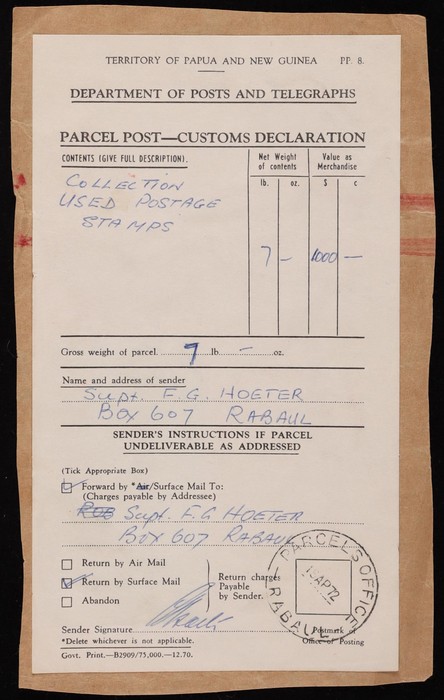 TERRITORY OF PAPUA AND NEW GUINEA PP. 8.
DEPARTMENT OF POSTS AND TELEGRAPHS
PARCEL POST—CUSTOMS DECLARATION
CONTENTS (GIVE FULL DESCRIPTION).
Net Weight of contents
Value as Merchandise
lb. oz. $ c
COLLECTION
USED POSTAGE
STAMPS
7 — 1000 —
Gross weight of parcel 7 lb. — oz.
Name and address of sender
Supt. F. G. HOETER
BOX 607 RABAUL
SENDER'S INSTRUCTIONS IF PARCEL
UNDELIVERABLE AS ADDRESSED
(Tick Appropriate Box)
Forward by *Air/Surface Mail To:
(Charges payable by Addressee)
Supt. F G HOETER
Box 607 RABAUL
Return by Air Mail
Return by Surface Mail
Abandon
Return charges
Payable
by Sender.
PARCELS OFFICE
AP72
RABAUL
Sender Signature
Postmark of
Office of Posting
*Delete whichever is not applicable.
Govt. Print.—B2909/75,000.—12.70.